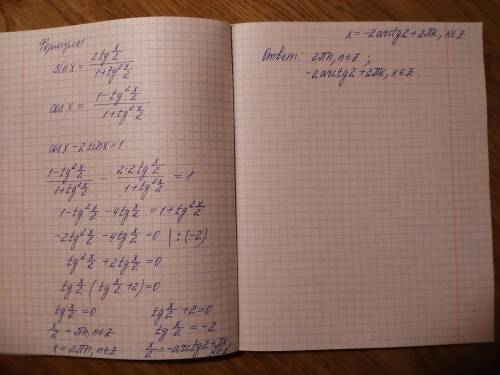 Формулы:
sin x = 2tg x/2 / 1+tg² x/2
cos x = 1-tg² x/2 / 1+tg² x/2
cos x - 2 sin x = 1
1-tg² x/2 / 1+tg² x/2 - 2·2tg x/2 / 1+tg² x/2 = 1
1-tg² x/2 - 4tg x/2 = 1+tg² x/2
-2tg² x/2 - 4tg x/2 = 0 | :(-2)
tg² x/2 + 2tg x/2 = 0
tg x/2 (tg x/2 + 2) = 0
tg x/2 = 0 tg x/2 + 2 = 0
x/2 = πn, n∈Z tg x/2 = -2
x = 2πn, n∈Z x/2 = -arctg2 + πk, k∈Z
x = -2arctg2 + 2πk, k∈Z
Ответ: 2πn, n∈Z,
-2arctg2 + 2πk, k∈Z